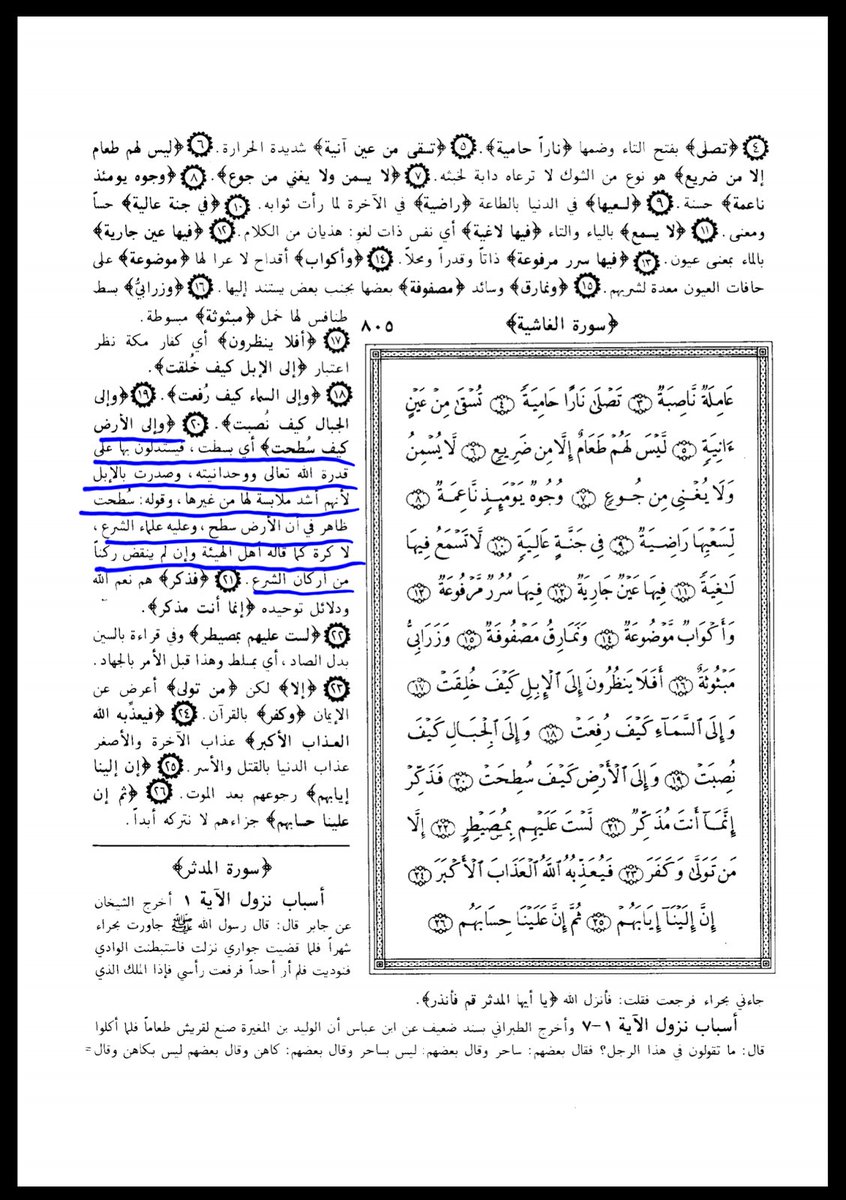 ٤ ﴿تصلى﴾ بفتح التاء وضمها ﴿ناراً حامية﴾. ٥ ﴿تسقى من عين آنية﴾ شديدة الحرارة. ٦ ﴿ليس لهم طعام
إلا من ضريع﴾ هو نوع من الشوك لا ترعاه دابة لخبثه. ٧ ﴿لا يسمن ولا يغني من جوع﴾. ٨ ﴿وجوه يومئذ
ناعمة﴾ حسنة. ٩ ﴿لسعيها﴾ في الدنيا بالطاعة ﴿راضية﴾ في الآخرة لما رأت ثوابه. ١٠ ﴿في جنة عالية﴾ حساً
ومعنى. ١١ ﴿لا يسمع﴾ بالياء والتاء ﴿فيها لاغية﴾ أي نفس ذات لغو: هذيان من الكلام. ١٢ ﴿فيها عين جارية﴾
بالماء بمعنى عيون. ١٣ ﴿فيها سرر مرفوعة﴾ ذاتاً وقدراً ومحلاً. ١٤ ﴿وأكواب﴾ أقداح لا عرا لها ﴿موضوعة﴾ على
حافات العيون معدة لشربهم. ١٥ ﴿ونمارق﴾ وسائد ﴿مصفوفة﴾ بعضها بجنب بعض يستند إليها. ١٦ ﴿وزرابيُّ﴾ بسط
طنافس لها خمل ﴿مبثوثة﴾ مبسوطة.
١٧ ﴿أفلا ينظرون﴾ أي كفار مكة نظر
اعتبار ﴿إلى الإبل كيف خُلقت﴾.
١٨ ﴿وإلى السماء كيف رُفعت﴾. ١٩ ﴿وإلى
الجبال كيف نُصبت﴾. ٢٠ ﴿وإلى الأرض
كيف سُطحت﴾ أي بسطت، فيستدلون بها على
قدرة الله تعالى ووحدانيته، وصدرت بالإبل
لأنهم أشد ملابسة لها من غيرها، وقوله: سُطحت
ظاهر في أن الأرض سطح، وعليه علماء الشرع،
لا كرة كما قاله أهل الهيئة وإن لم ينقض ركناً
من أركان الشرع. ٢١ ﴿فذكر﴾ هم نعم الله
ودلائل توحيده ﴿إنما أنت مذكر﴾.
٢٢ ﴿لست عليهم بمصيطر﴾ وفي قراءة بالسين
بدل الصاد، أي بمسلط وهذا قبل الأمر بالجهاد.
٢٣ ﴿إلا﴾ لكن ﴿من تولى﴾ أعرض عن
الإيمان ﴿وكفر﴾ بالقرآن. ٢٤ ﴿فيعذِّبه الله
العذاب الأكبر﴾ عذاب الآخرة والأصغر
عذاب الدنيا بالقتل والأسر. ٢٥ ﴿إن إلينا
إيابهم﴾ رجوعهم بعد الموت. ٢٦ ﴿ثم إن
علينا حسابهم﴾ جزاءهم لا نتركه أبداً.
﴿سورة المدثر﴾
أسباب نزول الآية ١ أخرج الشيخان
عن جابر قال: قال رسول الله ﷺ جاورت بحراء
شهراً فلما قضيت جواري نزلت فاستبطنت الوادي
فنوديت فلم أر أحداً فرفعت رأسي فإذا الملك الذي
﴿سورة الغاشية﴾ ٨٠٥
عَامِلَةٌ نَّاصِبَةٌ ٣ تَصْلَىٰ نَارًا حَامِيَةً ٤ تُسْقَىٰ مِنْ عَيْنٍ
ءَانِيَةٍ ٥ لَّيْسَ لَهُمْ طَعَامٌ إِلَّا مِن ضَرِيعٍ ٦ لَّا يُسْمِنُ
وَلَا يُغْنِى مِن جُوعٍ ٧ وُجُوهٌ يَوْمَئِذٍ نَّاعِمَةٌ ٨
لِّسَعْيِهَا رَاضِيَةٌ ٩ فِى جَنَّةٍ عَالِيَةٍ ١٠ لَّا تَسْمَعُ فِيهَا
لَٰغِيَةً ١١ فِيهَا عَيْنٌ جَارِيَةٌ ١٢ فِيهَا سُرُرٌ مَّرْفُوعَةٌ ١٣
وَأَكْوَابٌ مَّوْضُوعَةٌ ١٤ وَنَمَارِقُ مَصْفُوفَةٌ ١٥ وَزَرَابِىُّ
مَبْثُوثَةٌ ١٦ أَفَلَا يَنظُرُونَ إِلَى الْإِبِلِ كَيْفَ خُلِقَتْ ١٧
وَإِلَى السَّمَآءِ كَيْفَ رُفِعَتْ ١٨ وَإِلَى الْجِبَالِ كَيْفَ
نُصِبَتْ ١٩ وَإِلَى الْأَرْضِ كَيْفَ سُطِحَتْ ٢٠ فَذَكِّرْ
إِنَّمَآ أَنتَ مُذَكِّرٌ ٢١ لَّسْتَ عَلَيْهِم بِمُصَيْطِرٍ ٢٢ إِلَّا
مَن تَوَلَّىٰ وَكَفَرَ ٢٣ فَيُعَذِّبُهُ اللَّهُ الْعَذَابَ الْأَكْبَرَ ٢٤
إِنَّ إِلَيْنَآ إِيَابَهُمْ ٢٥ ثُمَّ إِنَّ عَلَيْنَا حِسَابَهُم ٢٦
جاءني بحراء فرجعت فقلت: فأنزل الله ﴿يا أيها المدثر قم فأنذر﴾.
أسباب نزول الآية ١–٧ وأخرج الطبراني بسند ضعيف عن ابن عباس أن الوليد بن المغيرة صنع لقريش طعاماً فلما أكلوا
قال: ما تقولون في هذا الرجل؟ فقال بعضهم: ساحر وقال بعضهم: ليس بساحر وقال بعضهم: كاهن وقال بعضهم ليس بكاهن وقال=